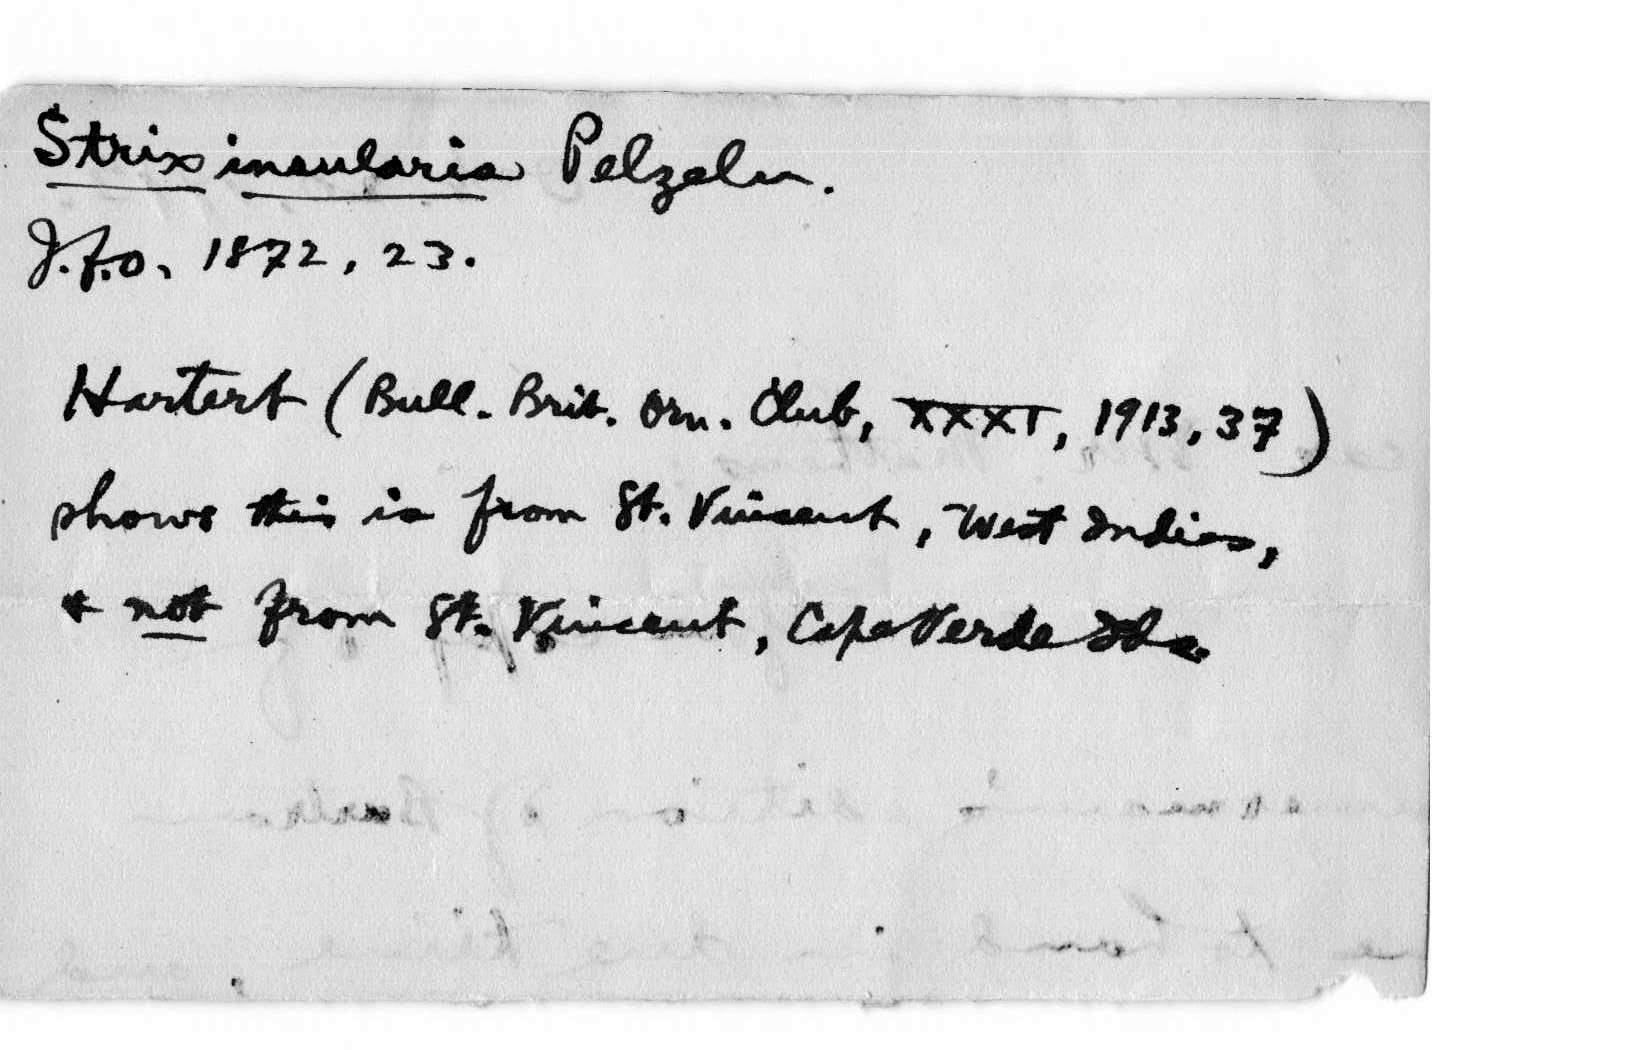 Strix insularis Pelzeln.
J.f.O. 1872, 23.
Hartert (Bull. Brit. Orn. Club, XXXI, 1913, 37)
shows this is from St. Vincent, West Indies,
& not from St. Vincent, Cape Verde Ids.